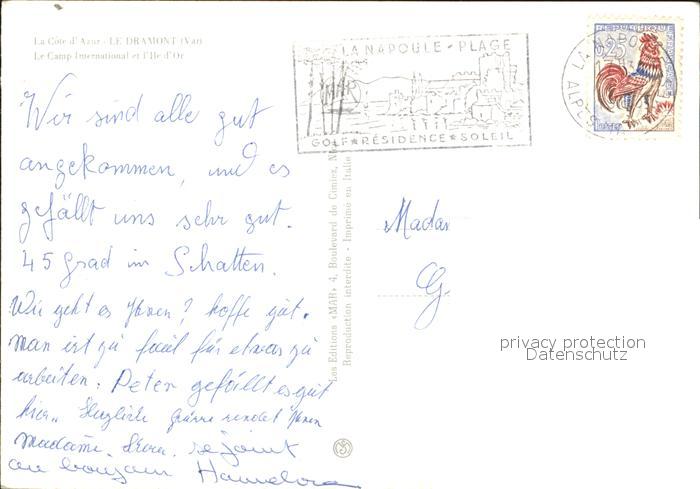 La Côte d'Azur - LE DRAMONT (Var)
Le Camp International et l'Ile d'Or
LA NAPOULE - PLAGE
GOLF ★ RÉSIDENCE ★ SOLEIL
0,25
ALPES
Wir sind alle gut
angekommen, und es
gefällt uns sehr gut.
45 grad im Schatten.
Wie geht es Ihnen? hoffe gut.
man ist zu faul für etwas zu
arbeiten. Peter gefällt es gut
hier.. Herzliche Grüsse sendet Ihnen
madame. se joint
au bonjour Hannelore
Les Editions «MAR» 4, Boulevard de Cimiez, N
Reproduction interdite - Imprimé en Italie
Madam
G.
privacy protection
Datenschutz